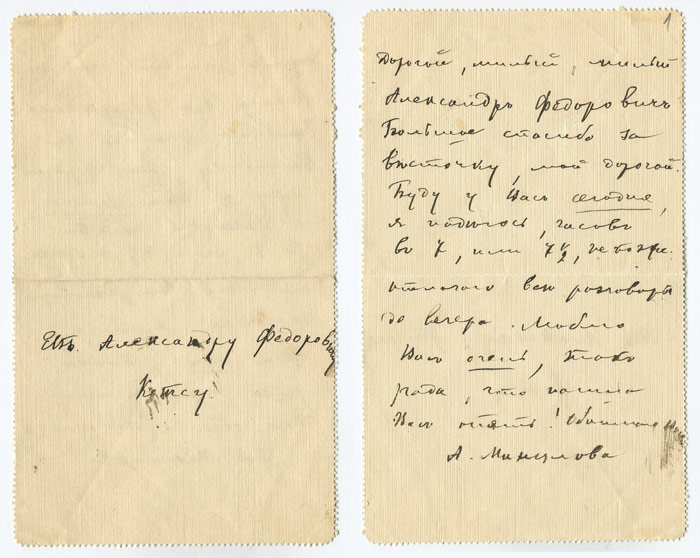 Его В. Александру Федоровичу
Котсу
1
Дорогой, милый, милый
Александръ Федоровичъ
Большое спасибо за
весточку, мой дорогой.
Буду у Васъ сегодня,
я надеюсь, часовъ
въ 7, или 7 1/2, не позже.
все разговоры
до вечера. Люблю
Васъ очень, такъ
рада, что нашла
Васъ опять! Обнимаю
А. Минцлова